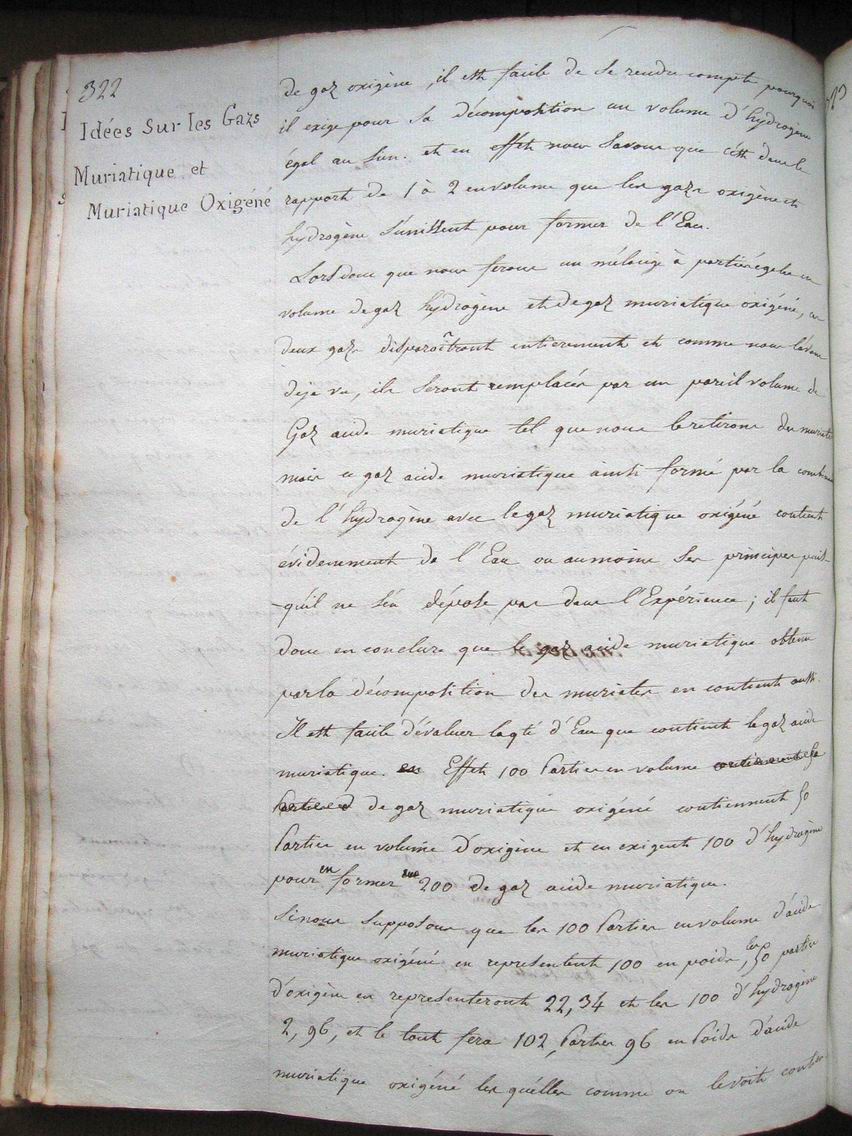 322
Idées Sur les Gazs
Muriatique et
Muriatique Oxigéné
de gaz oxigène, il est facile de se rendre compte pourquoi
il exige pour sa décomposition un volume d'hydrogène
égal au sien. et en effet nous savons que c'est dans le
rapport de 1 à 2 en volume que les gazs oxigène et
hydrogène s'unissent pour former de l'Eau.
Lors donc que nous ferons un mélange à parties égales en
volume de gaz hydrogène et de gaz muriatique oxigéné,
deux gazs disparoîtront entierement et comme nous l'avons
deja vu, ils seront remplacés par un pareil volume de
Gaz acide muriatique tel que nous le retirons des
mais ce gaz acide muriatique ainsi formé par la
de l'hydrogène avec le gaz muriatique oxigéné contient
évidemment de l'Eau ou au moins ses principes puis
qu'il ne s'en dépose pas dans l'Expérience; il faut
donc en conclure que le gaz acide muriatique obtenu
par la décomposition des muriates en contient aussi
Il est facile d'évaluer la qté d'Eau que contient le gaz acide
muriatique. en Effet 100 Parties en volume contiennent 50
Parties de gaz muriatique oxigéné contiennent 50
Parties en volume d'oxigène et en exigent 100 d'hydrogène
pour en former 200 de gaz acide muriatique.
Si nous supposons que les 100 Parties en volume d'acide
muriatique oxigéné en representent 100 en poids, les 50 parties
d'oxigène en representeront 22,34 et les 100 d'hydrogène
2,96, et le tout fera 102, Parties 96 en Poids d'acide
muriatique oxigéné les quélles comme on le voit